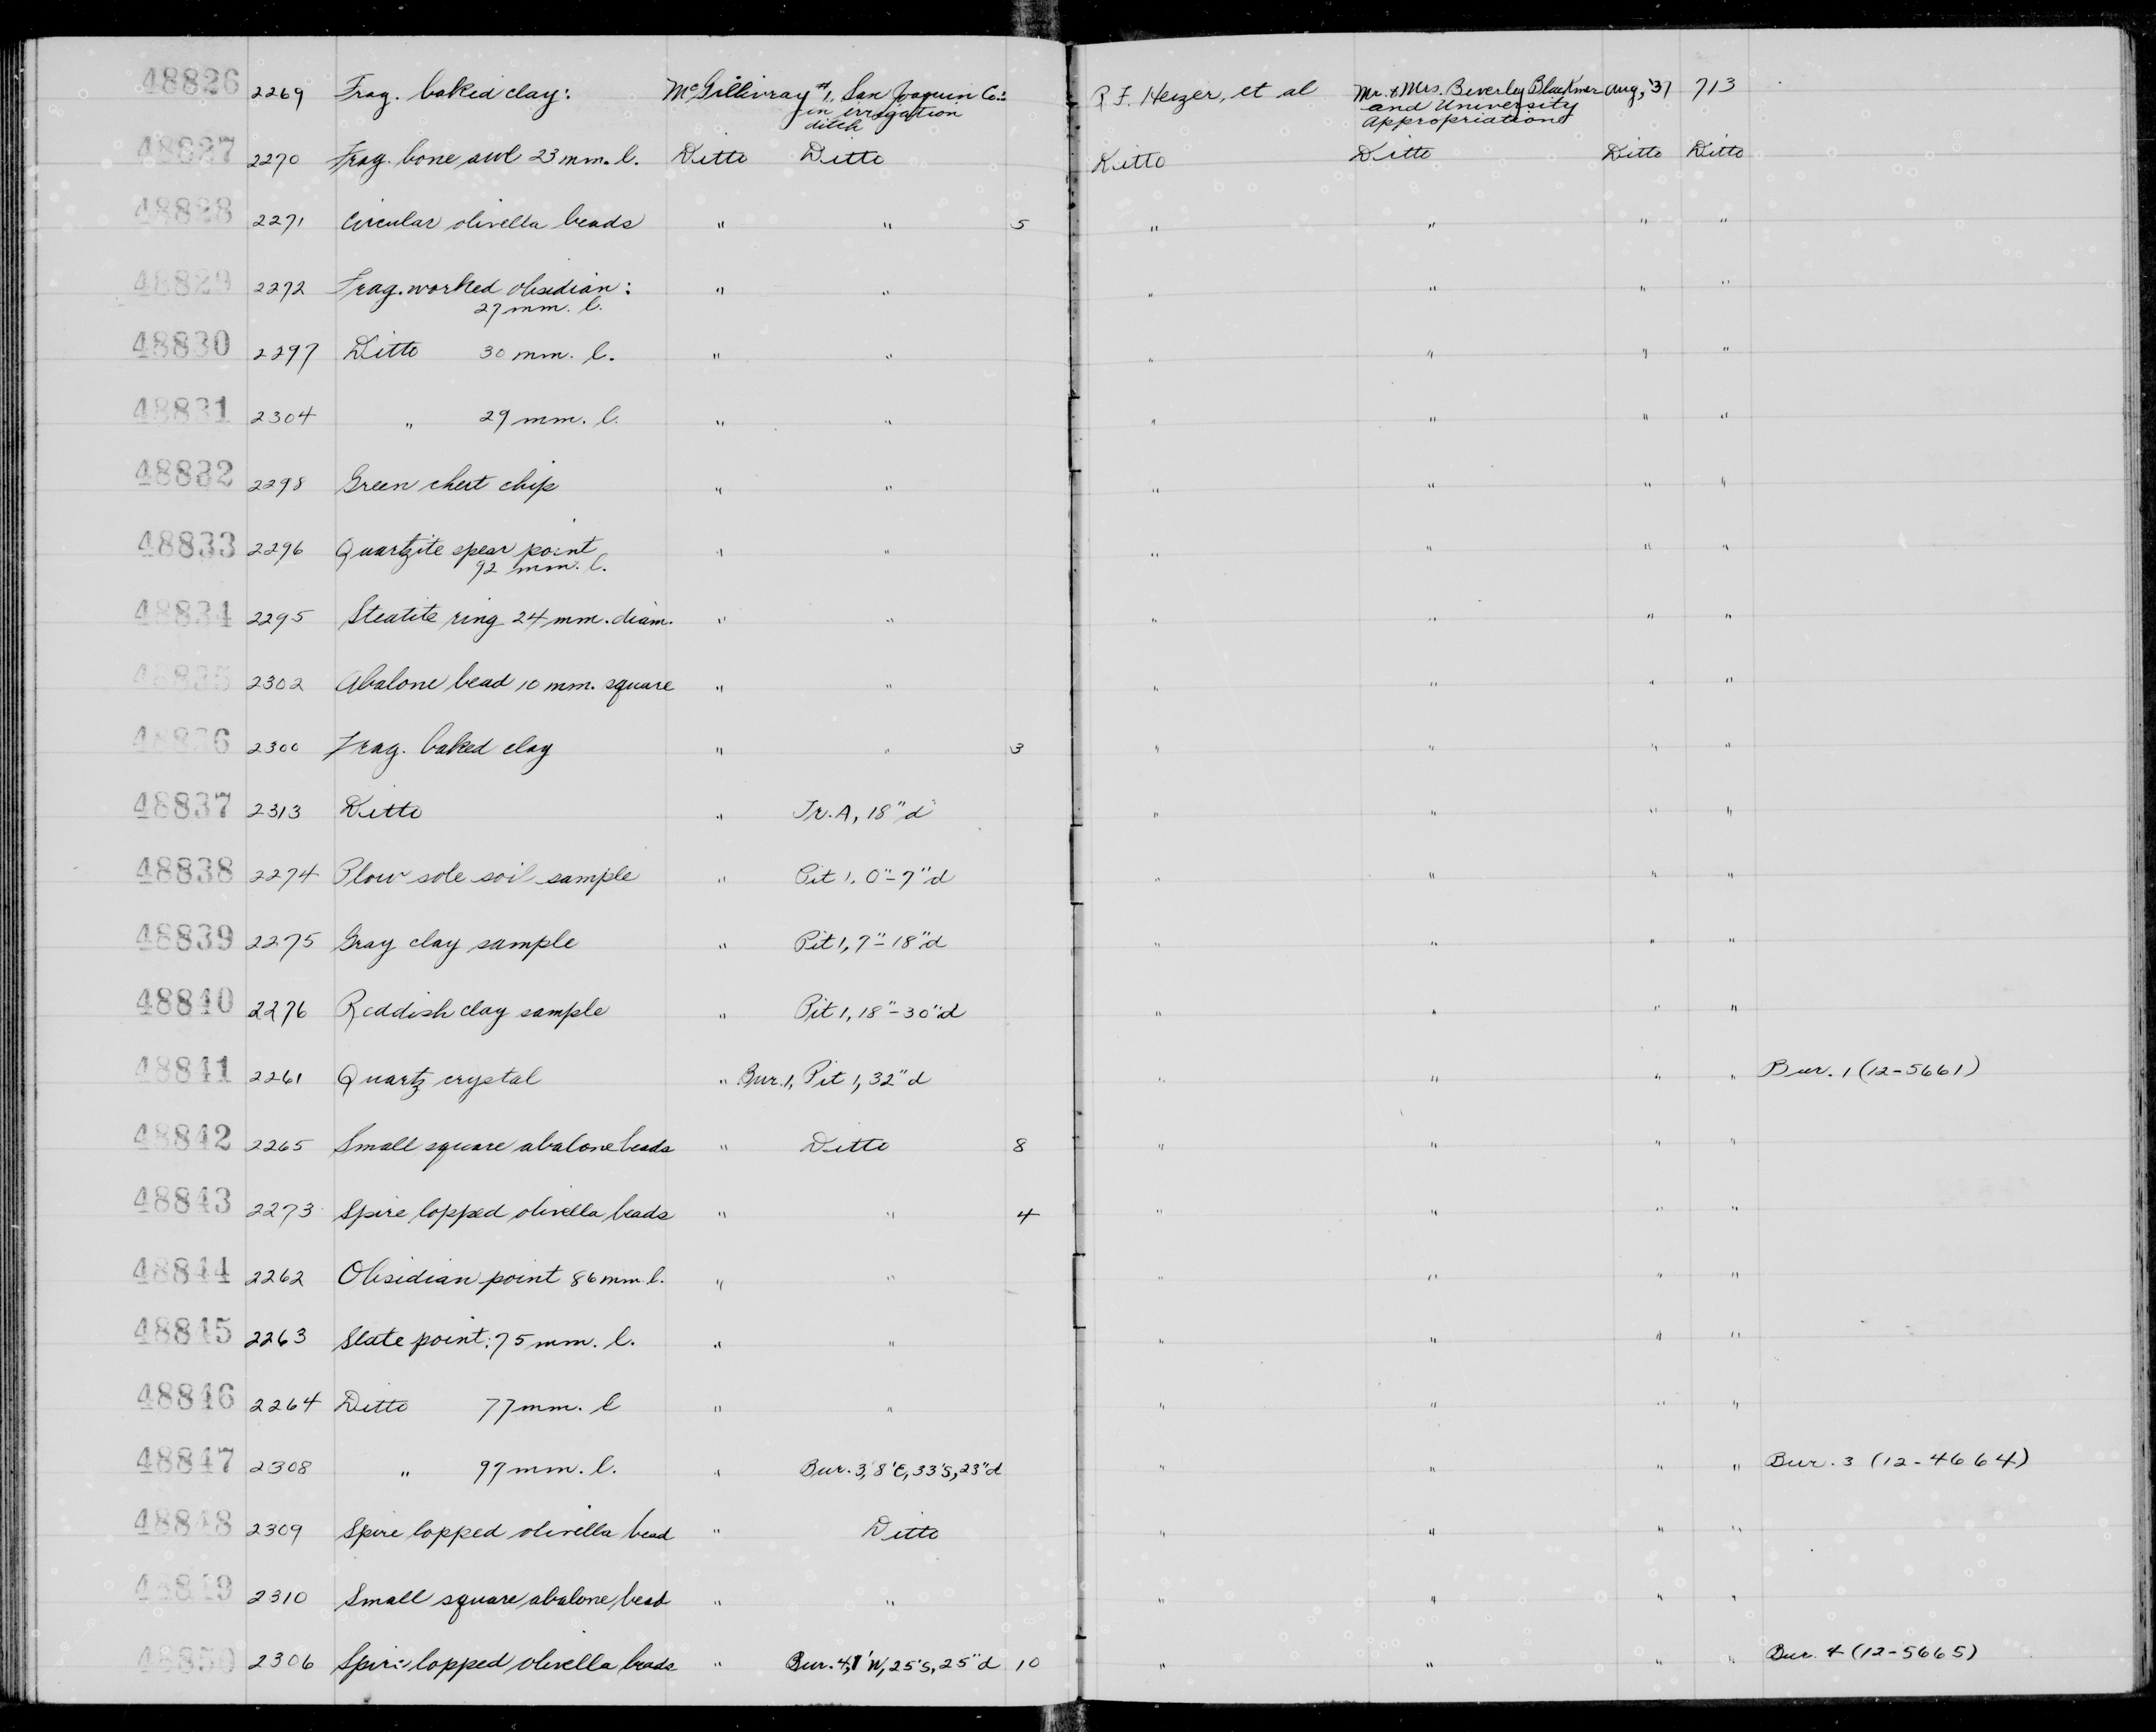 48826 2269 Frag. baked clay: McGillivray #1, San Joaquin Co.: R. F. Heizer, et al Mr. & Mrs. Beverley Blackmer Aug, '37 713
in irrigation and University
ditch Appropriations
48827 2270 Frag. bone awl 23 mm. l. Ditto Ditto Ditto Ditto Ditto Ditto
48828 2271 Circular olivella beads " " 5 " " " "
48829 2272 Frag. worked obsidian: " " " " " "
27 mm. l.
48830 2297 Ditto 30 mm. l. " " " " " "
48831 2304 " 29 mm. l. " " " " " "
48832 2298 Green chert chip " " " " " "
48833 2296 Quartzite spear point " " " " " "
92 mm. l.
48834 2295 Steatite ring 24 mm. diam. " " " " " "
48835 2302 Abalone bead 10 mm. square " " " " " "
48836 2300 Frag. baked clay " " 3 " " " "
48837 2313 Ditto " Tr. A, 18" d " " " "
48838 2274 Plow sole soil sample " Pit 1, 0"-7" d " " " "
48839 2275 Gray clay sample " Pit 1, 7"-18" d " " " "
48840 2276 Reddish clay sample " Pit 1, 18"-30" d " " " "
48841 2261 Quartz crystal " Bur. 1, Pit 1, 32" d " " " " Bur. 1 (12-5661)
48842 2265 Small square abalone beads " Ditto 8 " " " "
48843 2273 Spire lopped olivella beads " " 4 " " " "
48844 2262 Obsidian point 86 mm. l. " " " " " "
48845 2263 Slate point: 75 mm. l. " " " " " "
48846 2264 Ditto 77 mm. l " " " " " "
48847 2308 " 97 mm. l. " Bur. 3, 8'E, 33'S, 23" d " " " " Bur. 3 (12-4664)
48848 2309 Spire lopped olivella bead " Ditto " " " "
48849 2310 Small square abalone bead " " " " " "
48850 2306 Spire lopped olivella beads " Bur. 4, 1'W, 25'S, 25" d 10 " " " " Bur. 4 (12-5665)